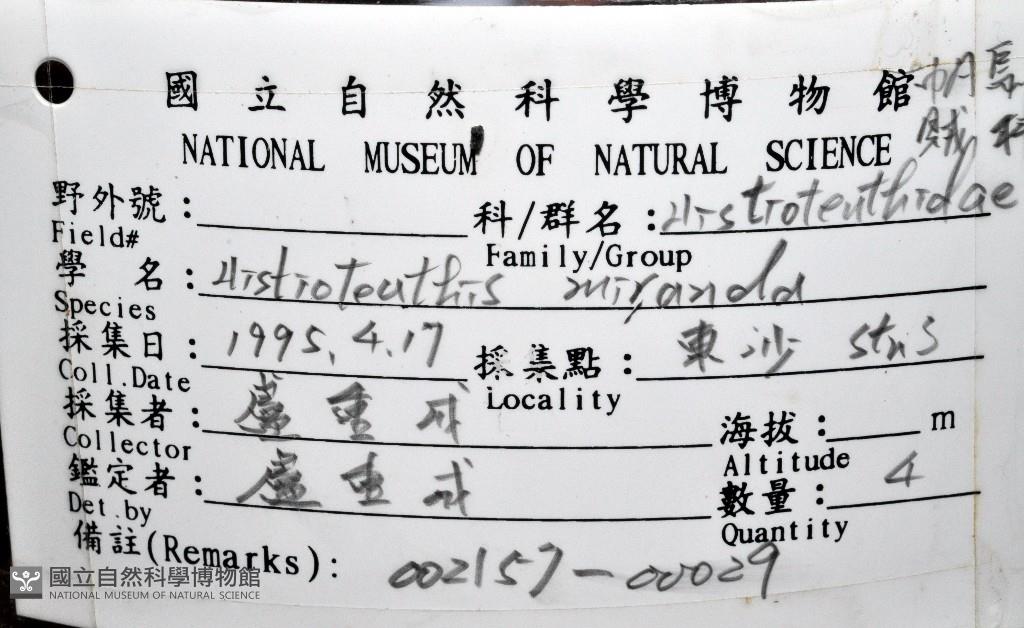 國立自然科學博物館
帆烏
賊科
NATIONAL MUSEUM OF NATURAL SCIENCE
野外號: 科/群名: Histioteuthidae
Field# Family/Group
學 名: Histioteuthis miranda
Species
採集日: 1995.4.17 採集點: 東沙 stn3
Coll.Date Locality
採集者: 盧重成 海拔: m
Collector Altitude
鑑定者: 盧重成 數量: 4
Det.by Quantity
備註(Remarks): 002157-00029
國立自然科學博物館
NATIONAL MUSEUM OF NATURAL SCIENCE